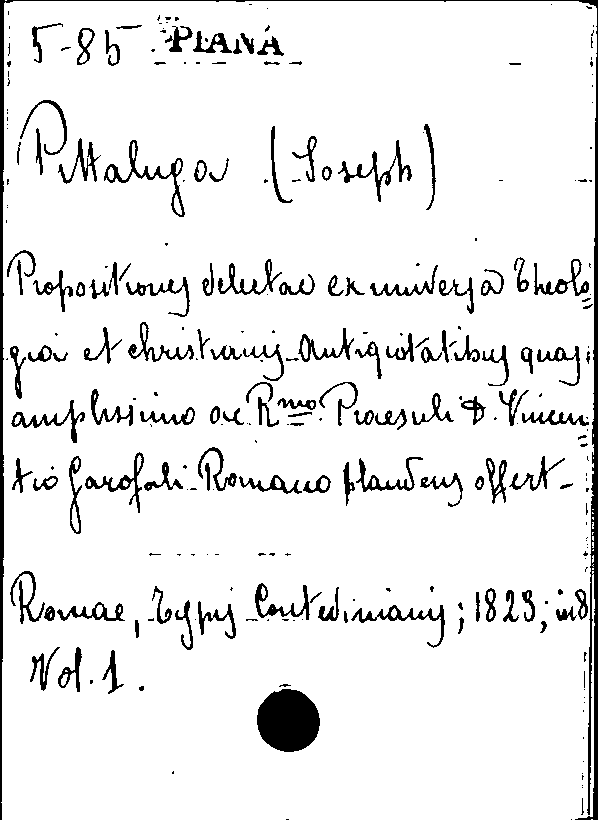 5-85 PIANA
Pittaluga (Joseph)
Propositiones delectae ex universa Theolo=
gia et christianis Antiquitatibus quas
amplissimo ac Rmo. Praesuli D. Vincen=
tio Garofali Romano plaudens offert-
Romae, Typis Contedinianis; 1823; in 8
Vol. 1.